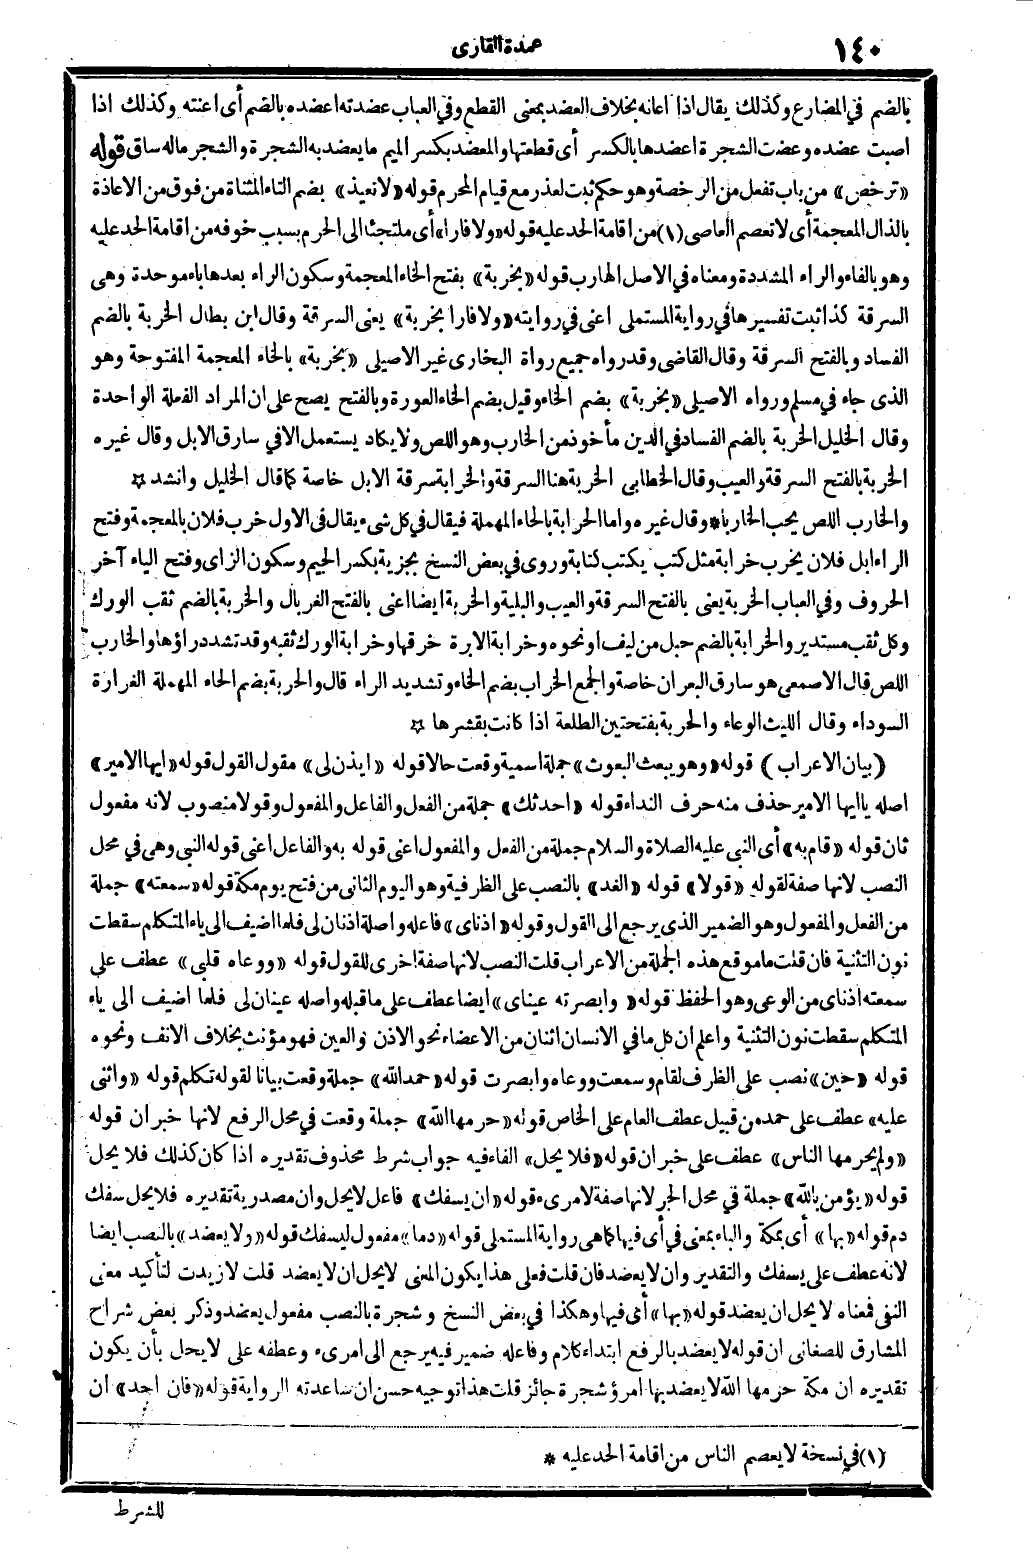 ١٤٠
عمدة القارى
بالضم في المضارع وكذلك يقال اذا اعانه بخلاف العضد بمعنى القطع وفي العباب عضدته اعضده بالضم أى اعنته وكذلك اذا
اصبت عضده وعضت الشجرة اعضدها بالكسر أى قطعتها والمعضد بكسر الميم ما يعضد به الشجرة والشجر ماله ساق قوله
«ترخص» من باب تفعل من الرخصة وهو حكم ثبت لعذر مع قيام المحرم قوله «لا تعيذ» بضم التاء المثناة من فوق من الاعاذة
بالذال المعجمة أى لا تعصم العاصى (١) من اقامة الحد عليه قوله «ولا فارا» أى ملتجئا الى الحرم بسبب خوفه من اقامة الحد عليه
وهو بالفاء والراء المشددة ومعناه في الاصل الهارب قوله «بخربة» بفتح الخاء المعجمة وسكون الراء بعدها باء موحدة وهى
السرقة كذا ثبت تفسيرها في رواية المستملى اعنى في روايته «ولا فارا بخربة» يعنى السرقة وقال ابن بطال الخربة بالضم
الفساد وبالفتح السرقة وقال القاضى وقد رواه جميع رواة البخارى غير الاصيلى «بخربة» بالخاء المعجمة المفتوحة وهو
الذى جاء في مسلم ورواه الاصيلى «بخربة» بضم الخاء وقيل بضم الخاء العورة وبالفتح يصح على ان المراد الفعلة الواحدة
وقال الخليل الخربة بالضم الفساد في الدين مأخوذ من الخارب وهو اللص ولا يكاد يستعمل الا في سارق الابل وقال غيره
الخربة بالفتح السرقة والعيب وقال الخطابى الخربة هنا السرقة والخرابة سرقة الابل خاصة كما قال الخليل وانشد ☆
والخارب اللص يحب الخاربا * وقال غيره واما الحرابة بالحاء المهملة فيقال في كل شىء يقال في الاول خرب فلان بالمعجمة وفتح
الراء ابل فلان يخرب خرابة مثل كتب يكتب كتابة وروى في بعض النسخ بجزية بكسر الجيم وسكون الزاى وفتح الياء آخر
الحروف وفي العباب الخربة يعنى بالفتح السرقة والعيب والبلية والخربة ايضا اعنى بالفتح الغربال والخربة بالضم ثقب الورك
وكل ثقب مستدير والخرابة بالضم حبل من ليف او نحوه وخرابة الابرة خرقها وخرابة الورك ثقبه وقد تشدد راؤها والخارب
اللص قال الاصمعى هو سارق البعران خاصة والجمع الخراب بضم الخاء وتشديد الراء قال والحربة بضم الحاء المهملة الغرارة
السوداء وقال الليث الوعاء والحربة بفتحتين الطلعة اذا كانت بقشرها ☆
(بيان الاعراب) قوله «وهو يبعث البعوث» جملة اسمية وقعت حالا قوله «ايذن لى» مقول القول قوله «ايها الامير»
اصله يا ايها الامير حذف منه حرف النداء قوله «احدثك» جملة من الفعل والفاعل والمفعول وقولا منصوب لانه مفعول
ثان قوله «قام به» أى النبى عليه الصلاة والسلام جملة من الفعل والمفعول اعنى قوله به والفاعل اعنى قوله النبى وهى في محل
النصب لانها صفة لقوله «قولا» قوله «الغد» بالنصب على الظرفية وهو اليوم الثانى من فتح يوم مكة قوله «سمعته» جملة
من الفعل والمفعول وهو الضمير الذى يرجع الى القول وقوله «اذناى» فاعله واصلة اذنان لى فلما اضيف الى ياء المتكلم سقطت
نون التثنية فان قلت ما موقع هذه الجملة من الاعراب قلت النصب لانها صفة اخرى للقول قوله «ووعاه قلبى» عطف على
سمعته اذناى من الوعى وهو الحفظ قوله «وابصرته عيناى» ايضا عطف على ما قبله واصله عينان لى فلما اضيف الى ياء
المتكلم سقطت نون التثنية واعلم ان كل ما في الانسان اثنان من الاعضاء نحو الاذن والعين فهو مؤنث بخلاف الانف ونحوه
قوله «حين» نصب على الظرف لقام وسمعت ووعاه وابصرت قوله «حمد الله» جملة وقعت بيانا لقوله تكلم قوله «واثنى
عليه» عطف على حمد من قبيل عطف العام على الخاص قوله «حرمها الله» جملة وقعت في محل الرفع لانها خبر ان قوله
«ولم يحرمها الناس» عطف على خبر ان قوله «فلا يحل» الفاء فيه جواب شرط محذوف تقديره اذا كان كذلك فلا يحل
قوله «يؤمن بالله» جملة في محل الجر لانها صفة لامرىء قوله «ان يسفك» فاعل لا يحل وان مصدرية تقديره فلا يحل سفك
دم قوله «بها» أى بمكة والباء بمعنى في أى فيها كما هى رواية المستملى قوله «دما» مفعول ليسفك قوله «ولا يعضد» بالنصب ايضا
لانه عطف على يسفك والتقدير وان لا يعضد فان قلت فعلى هذا يكون المعنى لا يحل ان لا يعضد قلت لا زيدت لتأكيد معنى
النفى فمعناه لا يحل ان يعضد قوله «بها» أى فيها وهكذا في بعض النسخ وشجرة بالنصب مفعول يعضد وذكر بعض شراح
المشارق للصغانى ان قوله لا يعضد بالرفع ابتداء كلام وفاعله ضمير فيه يرجع الى امرىء وعطفه على لا يحل بأن يكون
تقديره ان مكة حرمها الله لا يعضد بها امرؤ شجرة جائز قلت هذا توجيه حسن ان ساعدته الرواية قوله «فان احد» ان
(١) في نسخة لا يعصم الناس من اقامة الحد عليه *
للشرط